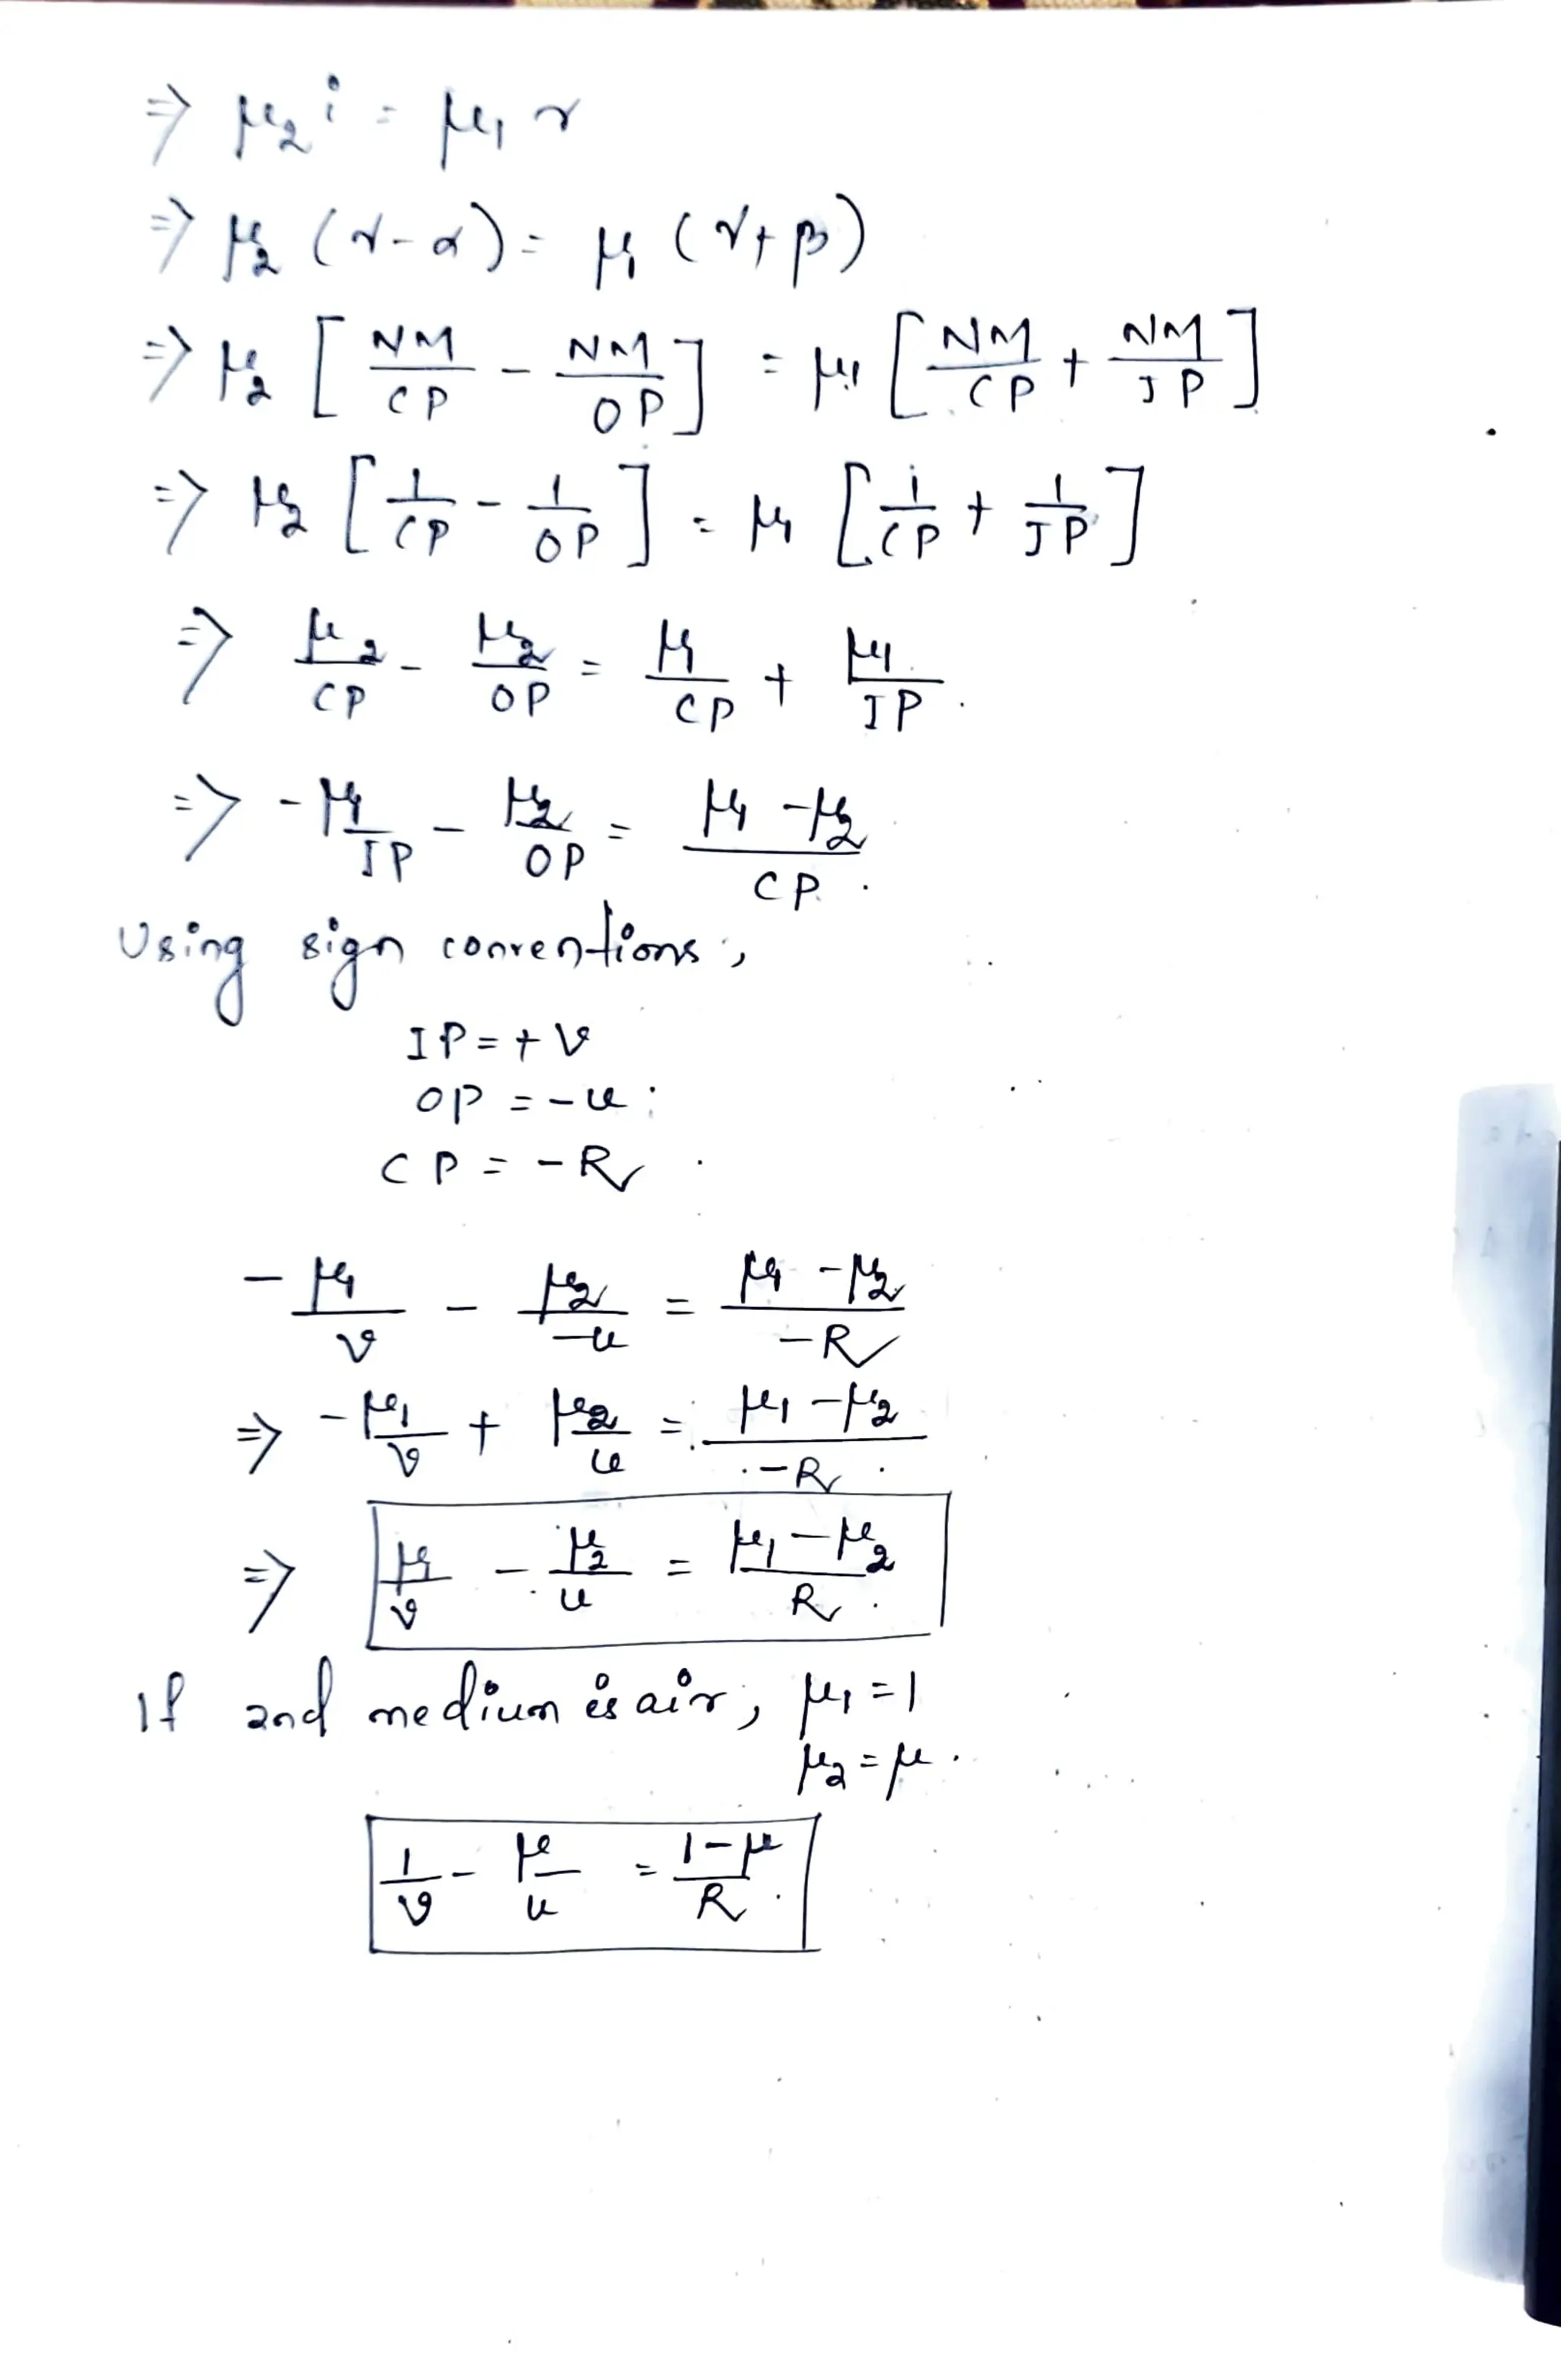 ⇒ μ₂ i = μ₁ r
⇒ μ₂ (γ - α) = μ₁ (γ + β)
⇒ μ₂ [NM/CP - NM/OP] = μ₁ [NM/CP + NM/IP]
⇒ μ₂ [1/CP - 1/OP] = μ₁ [1/CP + 1/IP]
⇒ μ₂/CP - μ₂/OP = μ₁/CP + μ₁/IP.
⇒ -μ₁/IP - μ₂/OP = (μ₁ - μ₂)/CP.
Using sign conventions,
IP = + v
OP = - u
CP = - R
- μ₁/v - μ₂/-u = (μ₁ - μ₂)/-R
⇒ - μ₁/v + μ₂/u = (μ₁ - μ₂)/-R
⇒ μ₁/v - μ₂/u = (μ₁ - μ₂)/R.
If 2nd medium is air, μ₁ = 1
μ₂ = μ.
1/v - μ/u = (1 - μ)/R.